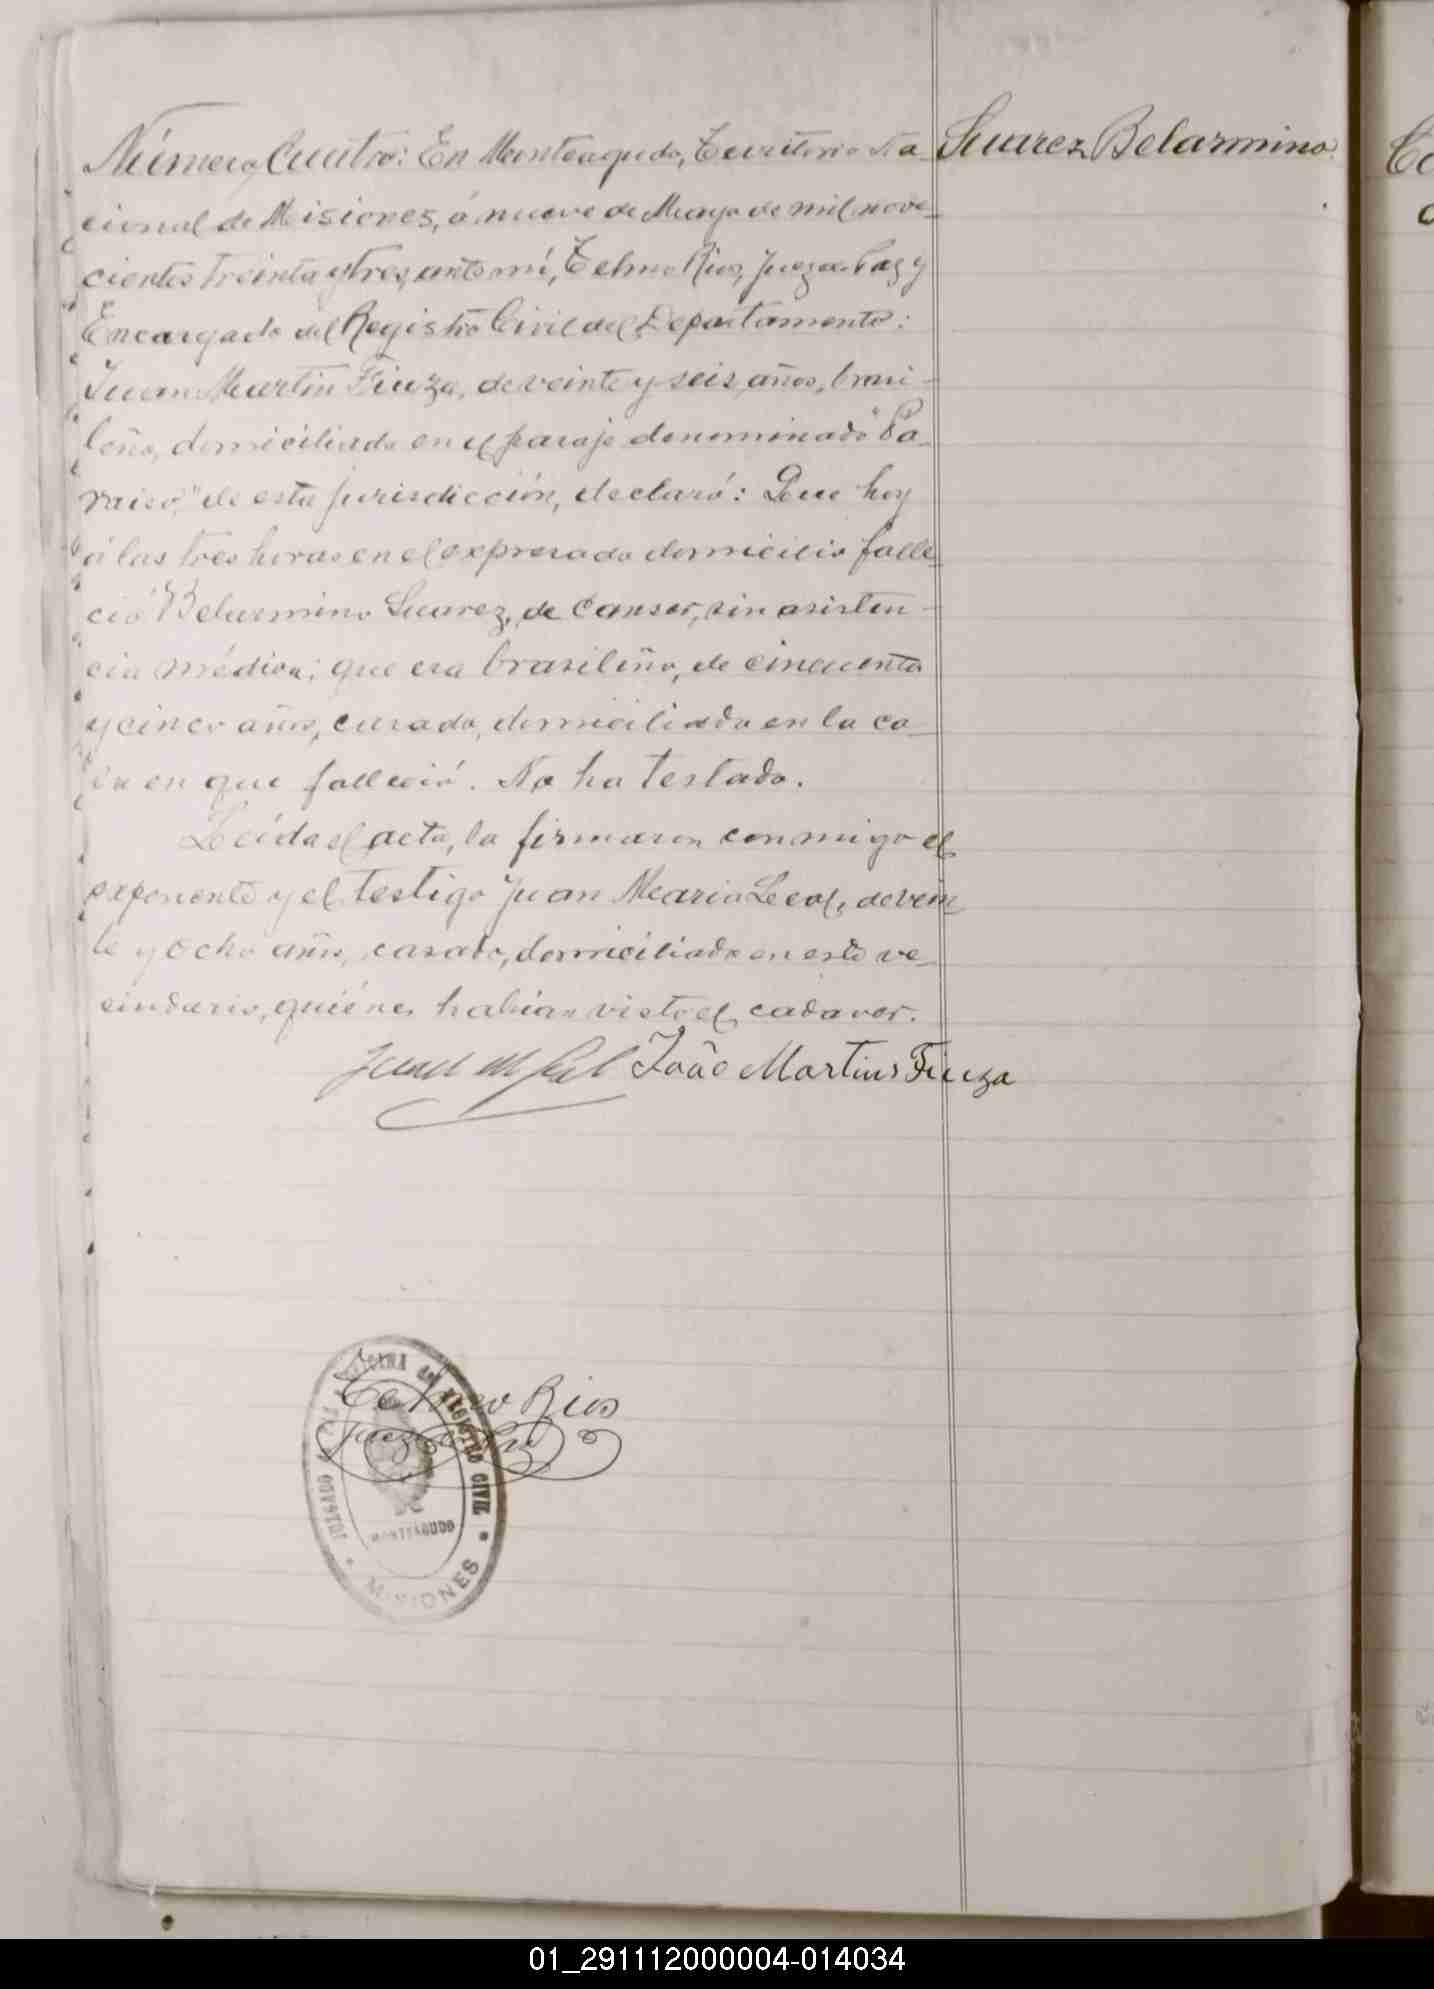 Número Cuatro: En Monteagudo, Territorio Na-
cional de Misiones, á nueve de Mayo de mil nove-
cientos treinta y tres, ante mí, Telmo Rios, Juez de Paz y
Encargado del Registro Civil del Departamento:
Juan Martin Fiuza, de veinte y seis años, brasi-
leño, domiciliado en el paraje denominado "Pa-
raiso," de esta jurisdicción, declaró: Que hoy
á las tres horas en el expresado domicilio falle-
ció Belarmino Suarez, de canser, sin asisten-
cia médica; que era brasileño, de cincuenta
y cinco años, casado, domiciliado en la ca-
sa en que falleció. No ha testado.
Leída el acta, la firmaron conmigo el
exponente y el testigo Juan Maria Leal, de vein
te y ocho años, casado, domiciliado en este ve-
cindario, quiénes habian visto el cadaver.
João Martins Fiuza
Telmo Rios
Juez de Paz
JUZGADO DE PAZ OFICINA del REGISTRO CIVIL
MONTEAGUDO
MISIONES
Suarez Belarmino.
01_291112000004-014034